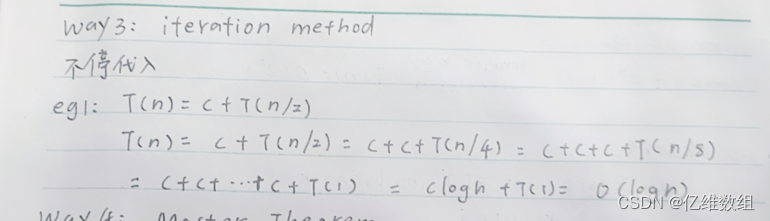 way3: iteration method
不停代入
eg1: T(n) = c + T(n/2)
T(n) = c + T(n/2) = c + c + T(n/4) = c + c + c + T(n/8)
= c + c + ··· + c + T(1) = c log n + T(1) = O(log n)
way4: Master Theorem
CSDN @亿维数组